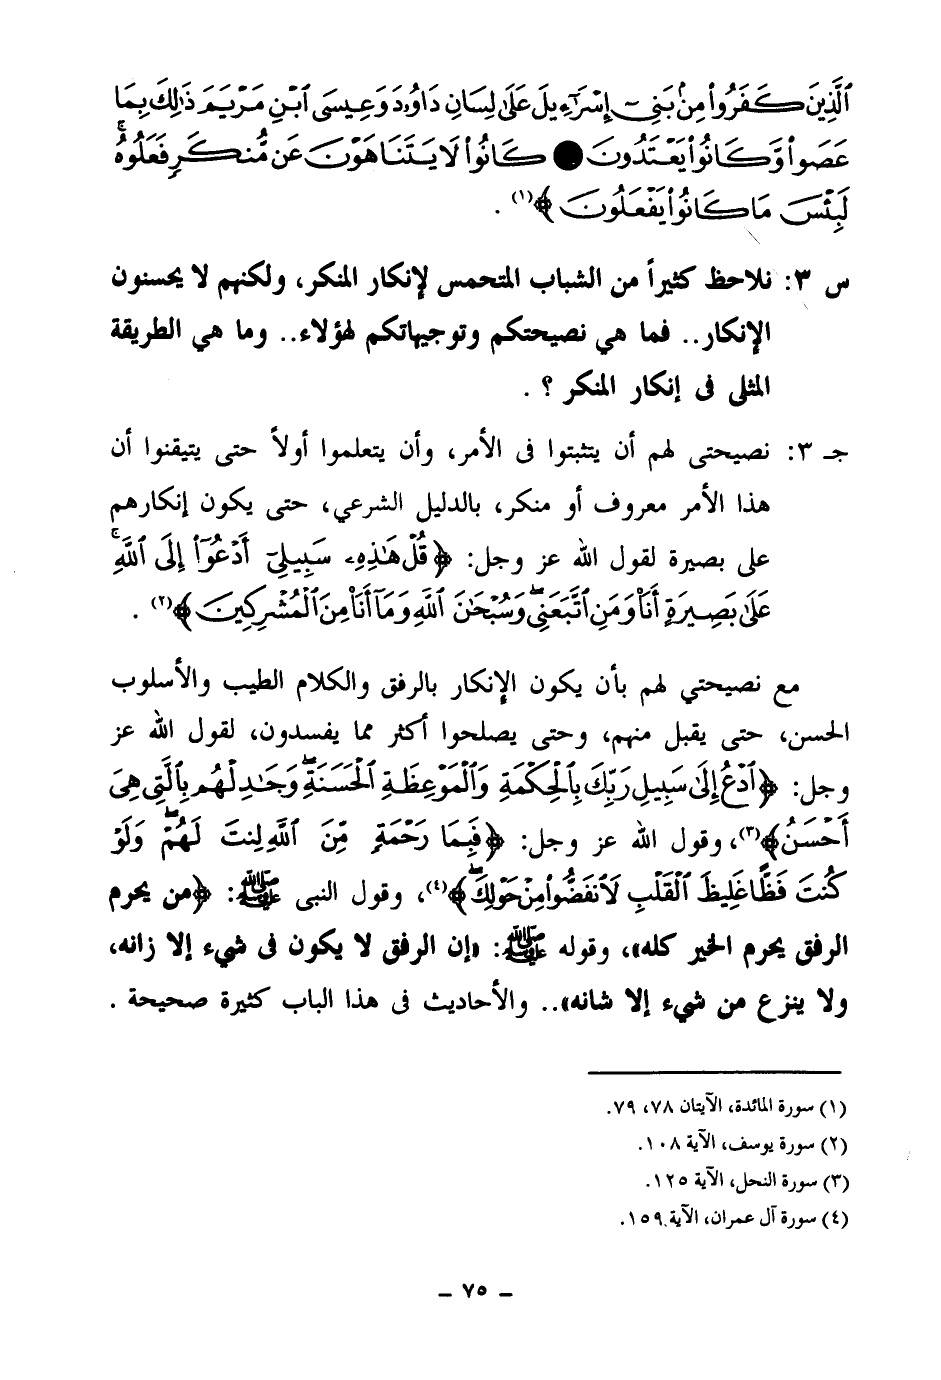 ٱلَّذِينَ كَفَرُوا۟ مِنۢ بَنِىٓ إِسْرَٰٓءِيلَ عَلَىٰ لِسَانِ دَاوُۥدَ وَعِيسَى ٱبْنِ مَرْيَمَ ذَٰلِكَ بِمَا
عَصَوا۟ وَّكَانُوا۟ يَعْتَدُونَ ● كَانُوا۟ لَا يَتَنَاهَوْنَ عَن مُّنكَرٍ فَعَلُوهُ ۚ
لَبِئْسَ مَا كَانُوا۟ يَفْعَلُونَ ﴾(١) .
س ٣: نلاحظ كثيراً من الشباب المتحمس لإنكار المنكر، ولكنهم لا يحسنون
الإنكار.. فما هي نصيحتكم وتوجيهاتكم لهؤلاء.. وما هي الطريقة
المثلى فى إنكار المنكر ؟ .
جـ ٣: نصيحتى لهم أن يتثبتوا فى الأمر، وأن يتعلموا أولاً حتى يتيقنوا أن
هذا الأمر معروف أو منكر، بالدليل الشرعي، حتى يكون إنكارهم
على بصيرة لقول الله عز وجل: ﴿ قُلْ هَٰذِهِۦ سَبِيلِىٓ أَدْعُوٓا۟ إِلَى ٱللَّهِ ۚ
عَلَىٰ بَصِيرَةٍ أَنَا۠ وَمَنِ ٱتَّبَعَنِى ۖ وَسُبْحَٰنَ ٱللَّهِ وَمَآ أَنَا۠ مِنَ ٱلْمُشْرِكِينَ ﴾(٢) .
مع نصيحتي لهم بأن يكون الإنكار بالرفق والكلام الطيب والأسلوب
الحسن، حتى يقبل منهم، وحتى يصلحوا أكثر مما يفسدون، لقول الله عز
وجل: ﴿ ٱدْعُ إِلَىٰ سَبِيلِ رَبِّكَ بِٱلْحِكْمَةِ وَٱلْمَوْعِظَةِ ٱلْحَسَنَةِ ۖ وَجَٰدِلْهُم بِٱلَّتِى هِىَ
أَحْسَنُ ﴾(٣)، وقول الله عز وجل: ﴿ فَبِمَا رَحْمَةٍ مِّنَ ٱللَّهِ لِنتَ لَهُمْ ۖ وَلَوْ
كُنتَ فَظًّا غَلِيظَ ٱلْقَلْبِ لَٱنفَضُّوا۟ مِنْ حَوْلِكَ ۖ ﴾(٤)، وقول النبى ﷺ: ﴿من يحرم
الرفق يحرم الخير كله﴾، وقوله ﷺ: «إن الرفق لا يكون فى شيء إلا زانه،
ولا ينزع من شيء إلا شانه».. والأحاديث فى هذا الباب كثيرة صحيحة .
(١) سورة المائدة، الآيتان ٧٨، ٧٩.
(٢) سورة يوسف، الآية ١٠٨.
(٣) سورة النحل، الآية ١٢٥.
(٤) سورة آل عمران، الآية ١٥٩.
ـ ٧٥ ـ